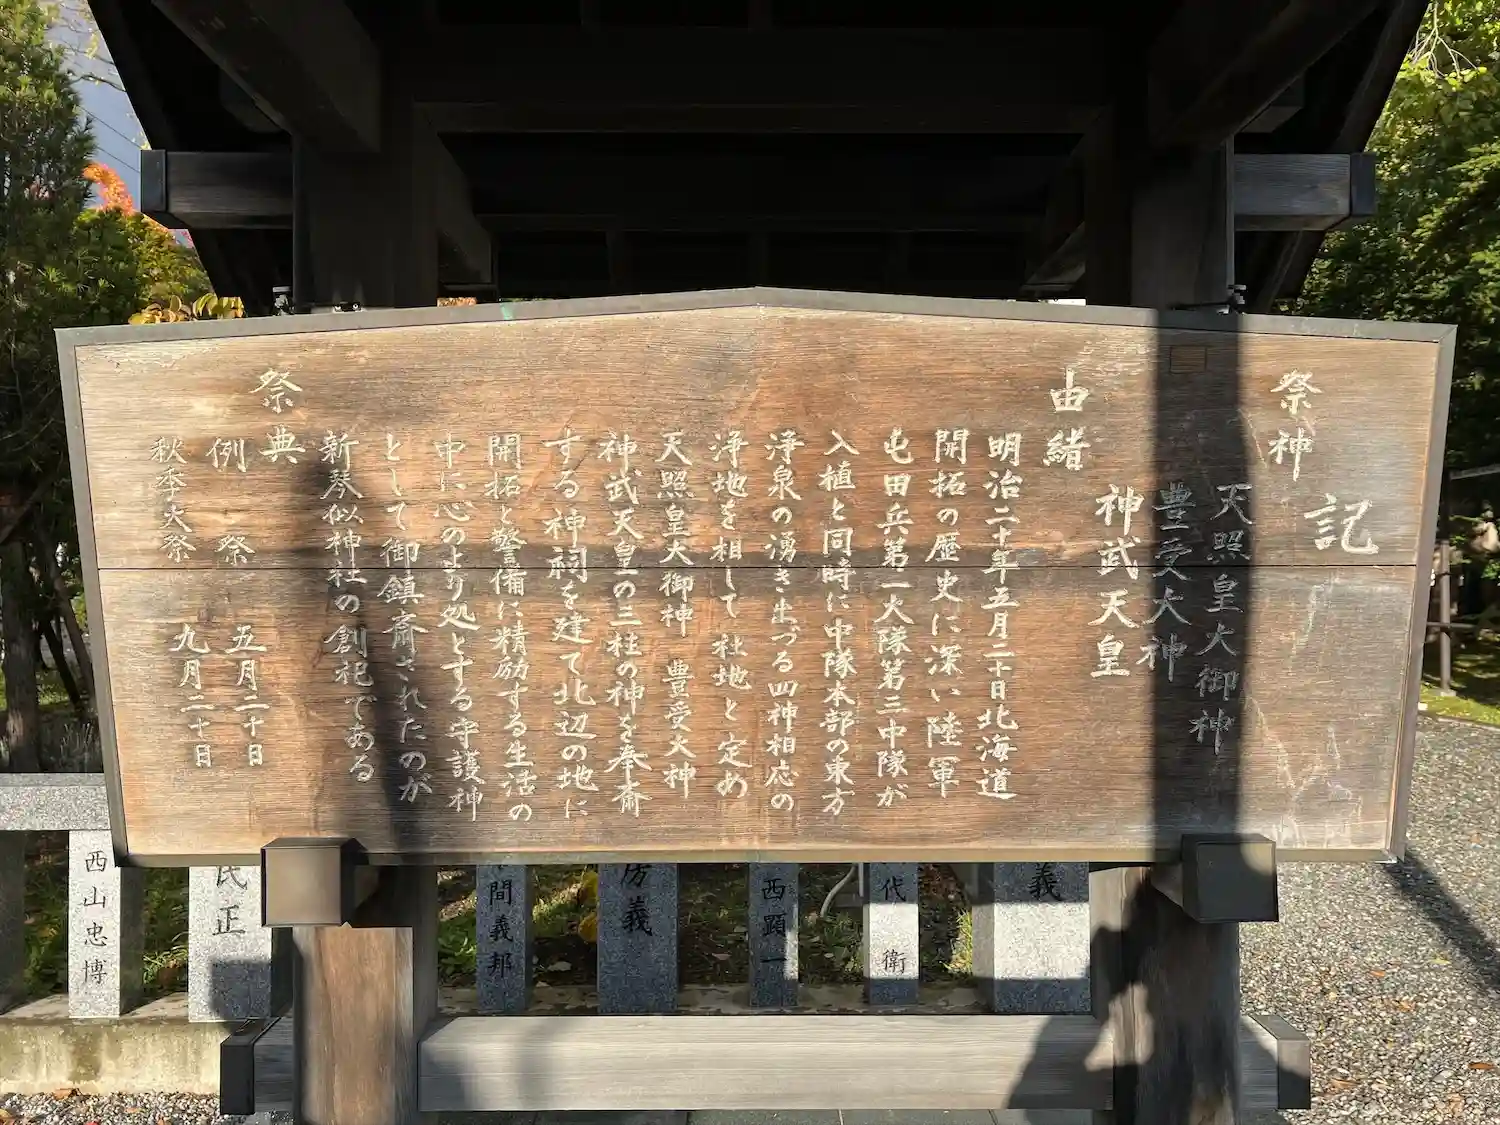 記
祭神
天照皇大御神
豊受大神
神武天皇
由緒
明治二十年五月二十日北海道
開拓の歴史に深い陸軍
屯田兵第一大隊第三中隊が
入植と同時に中隊本部の東方
浄泉の湧き出づる四神相応の
浄地を相して社地と定め
天照皇大御神 豊受大神
神武天皇の三柱の神を奉斎
する神祠を建て北辺の地に
開拓と警備に精励する生活の
中に心のより処とする守護神
として御鎮斎されたのが
新琴似神社の創祀である
祭典
例祭 五月二十日
秋季大祭 九月二十日
義
代衛
西顕一
房義
間義邦
民正
西山忠博